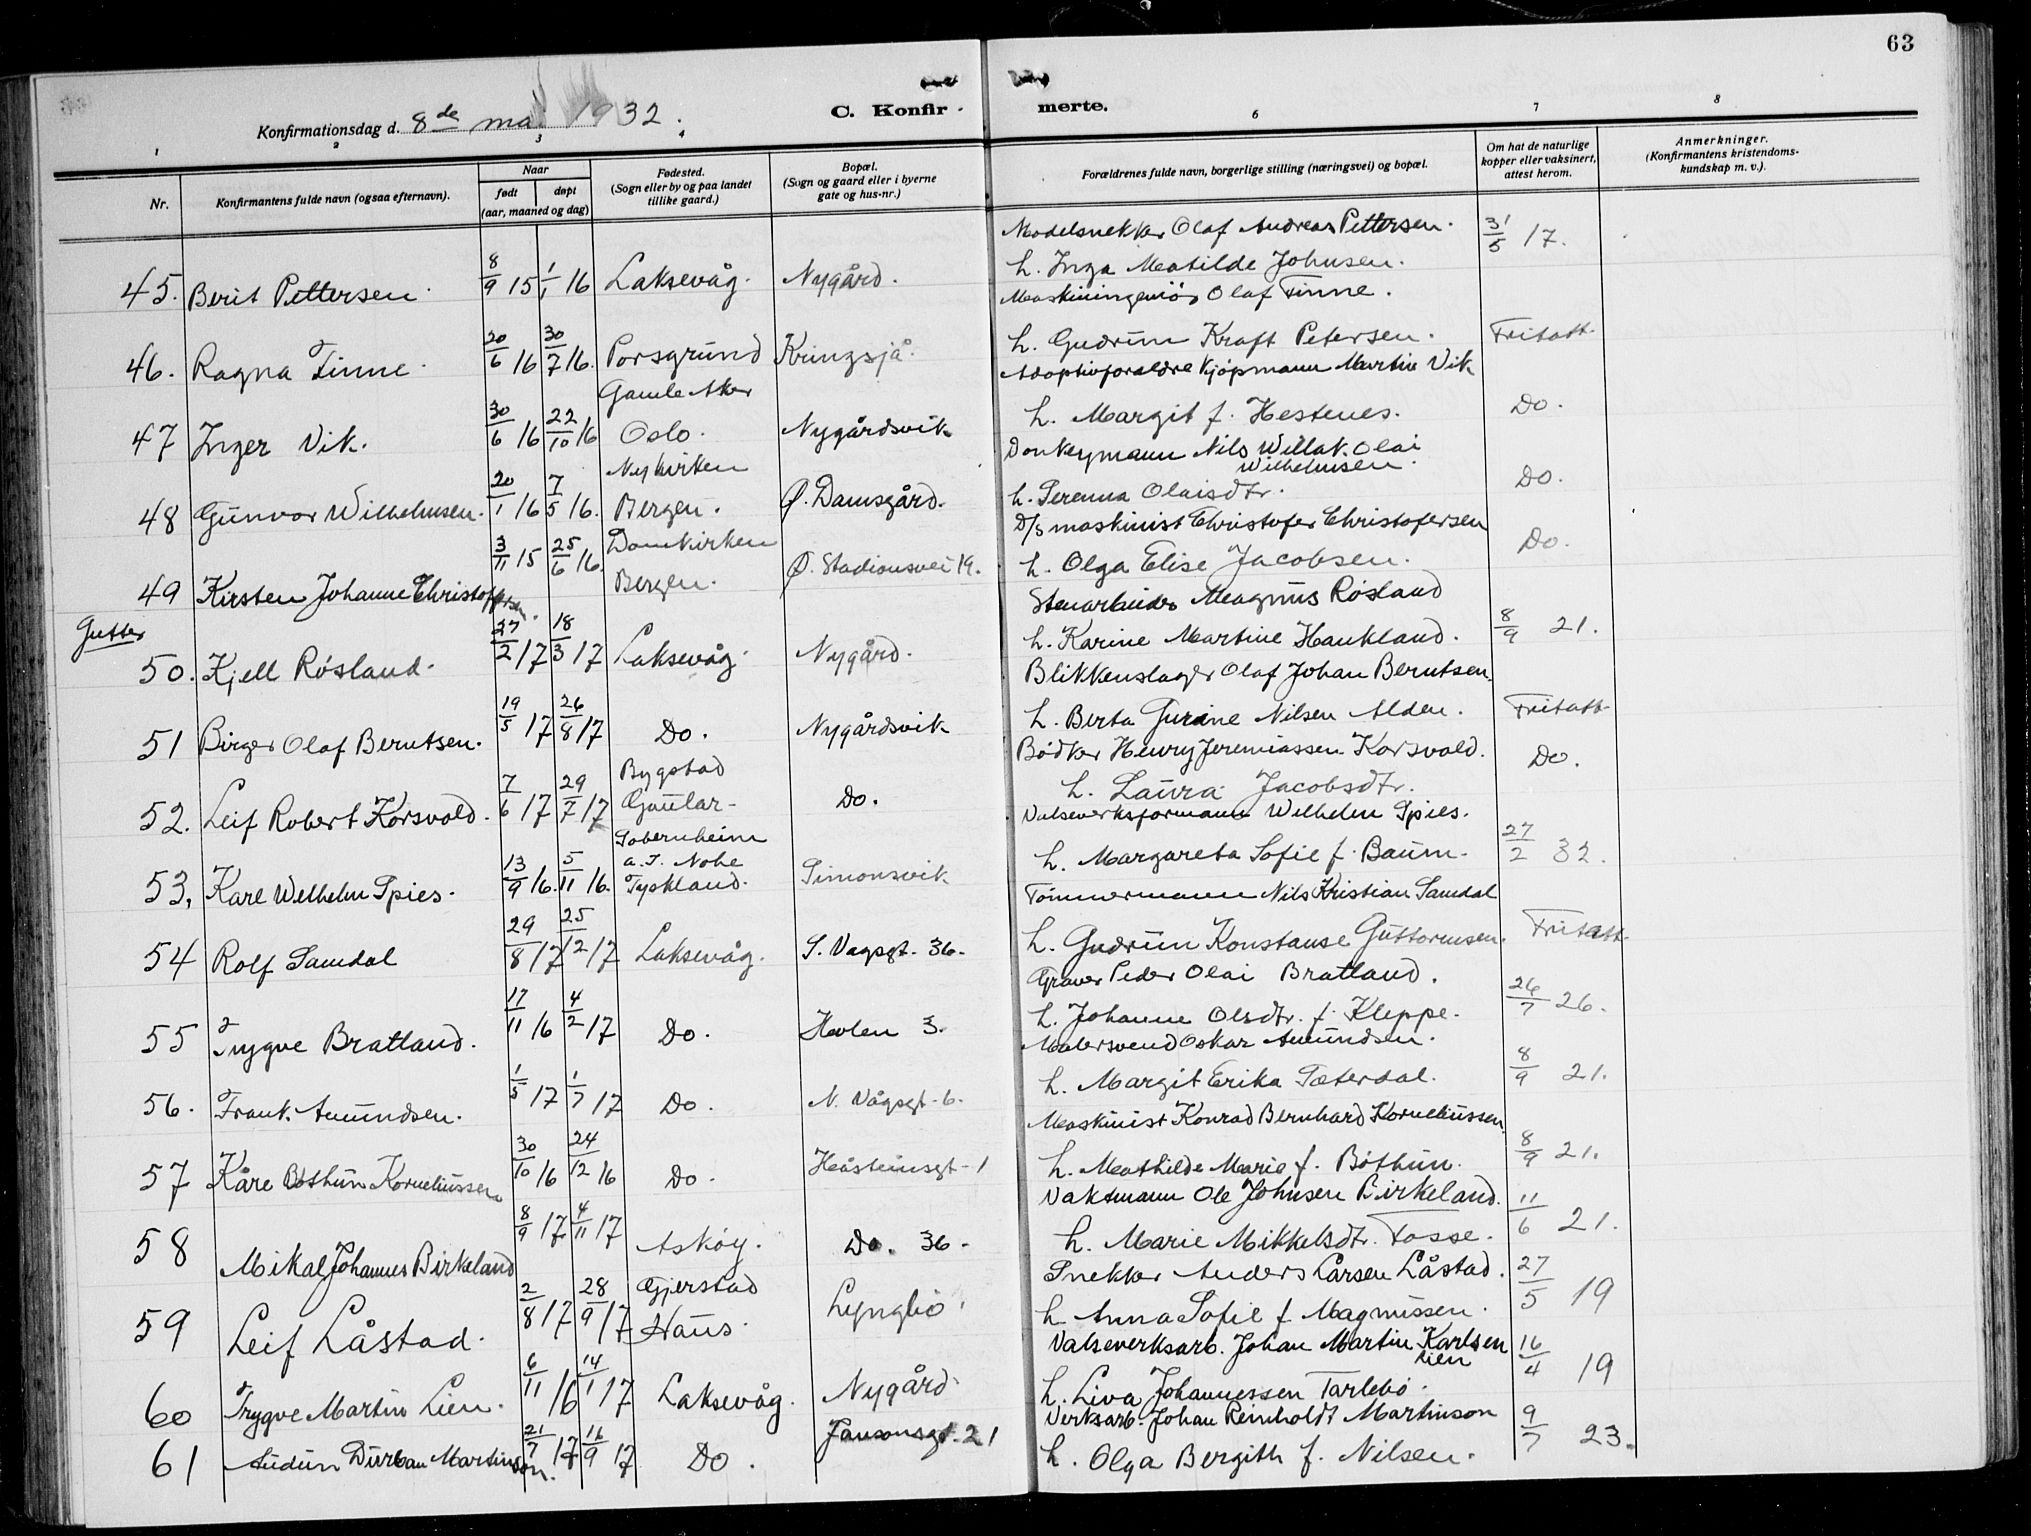 63
Konfirmationsdag d. 8de mai 1932.
C. Konfirmerte.
1 2 3 4 6 7 8
Nr.
Konfirmantens fulde navn (ogsaa efternavn).
Naar
født døpt
(aar, maaned og dag)
Fødested.
(Sogn eller by og paa landet
tillike gaard.)
Bopæl.
(Sogn og gaard eller i byerne
gate og hus-nr.)
Forældrenes fulde navn, borgerlige stilling (næringsvei) og bopæl.
Om hat de naturlige
kopper eller vaksinert,
attest herom.
Anmerkninger.
(Konfirmantens kristendoms-
kundskap m. v.).
Modelsnekker Olaf Andreas Pettersen.
45. Berit Pettersen. 8/9 15 1/1 16 Laksevåg. Nygård. h. Inga Matilde Johnsen. 31/5 17.
Maskiningeniør Olaf Finne.
46. Ragna Finne. 20/6 16 30/7 16. Porsgrund Kringsjå. h. Gudrun Kraft Petersen. Fritatt.
Gamle Aker
Adoptivforældre Kjøpmann Martin Vik
47 Inger Vik. 30/6 16 22/10 16 Oslo. Nygårdsvik h. Margit f. Hestenes. Do.
Nykirken
Donkeymann Nils Willak. Olai
Wilhelmsen.
48 Gunvor Wilhelmsen. 20/1 16 7/5 16. Bergen. Ø. Damsgård. h. Serenna Olaisdtr. Do.
Domkirken
D/s maskinist Christofer Christofersen
49 Kirsten Johanne Christoffersen. 3/11 15 25/6 16. Bergen. Ø. Stadionsvei 14. h. Olga Elise Jacobsen. Do.
Gutter
Stenarbeider Magnus Røsland
50. Kjell Røsland. 27/2 17 18/3 17 Laksevåg. Nygård. h. Karine Martine Haukland. 8/9 21.
Blikkenslager Olaf Johan Berntsen.
51 Birger Olaf Berntsen. 19/5 17 26/8 17 Do. Nygårdsvik h. Berta Gurine Nilsen Alden. Fritatt
Bygstad
Bødker Henry Jeremiassen Korsvold.
52. Leif Robert Korsvold. 7/6 17 29/7 17 Gaular- Do. h. Laura Jacobsdtr. Do.
Sobernheim
a. d. Nohe
Valseverksformann Wilhelm Spies.
53. Karl Wilhelm Spies. 13/9 16. 5/11 16. Tyskland. Simonsvik h. Margareta Sofie f. Baum. 27/2 32.
Tømmermann Nils Kristian Samdal
54 Rolf Samdal 29/8 17 25/12 17 Laksevåg. S. Vagsgt. 36. h. Gudrun Konstanse Guttormsen. Fritatt.
Graver Peder Olai Bratland.
55 Trygve Bratland. 17/11 16 4/2 17 Do. Holen 3. h. Johanne Olsdtr. f. Kleppe. 26/7 26.
Malersvend Oskar Amundsen.
56. Frank Amundsen. 1/5 17 1/7 17 Do. N. Vågsgt. 6. h. Margit Erika Sæterdal. 8/9 21.
Maskinist Konrad Bernhard Korneliussen.
57 Kåre Bøthun Korneliussen 30/10 16 24/12 16 Do. Håsteinsgt. 1 h. Mathilde Marie f. Bøthun. 8/9 21.
Vaktmann Ole Johnsen Birkeland.
58 Mikal Johannes Birkeland 8/9 17 4/11 17 Askøy. Do. 36. h. Marie Mikkelsdtr. Fosse. 11/6 21.
Gjerstad
Snekker Anders Larsen Låstad.
59 Leif Låstad. 2/8 17 28/9 17 Haus. Lyngbø. h. Anna Sofie f. Magnussen. 27/5 19
Valseverksarb. Johan Martin Karlsen
Lien
60 Trygve Martin Lien. 6/11 16 14/1 17 Laksevåg. Nygård. h. Liva Johannessen Tarlebø. 16/4 19
Verksarb. Johan Reinholdt Martinson
61 Audun Durban Martinson. 21/7 17 16/9 17 Do. Jansonsgt. 21 h. Olga Bergith f. Nilsen. 9/7 23.